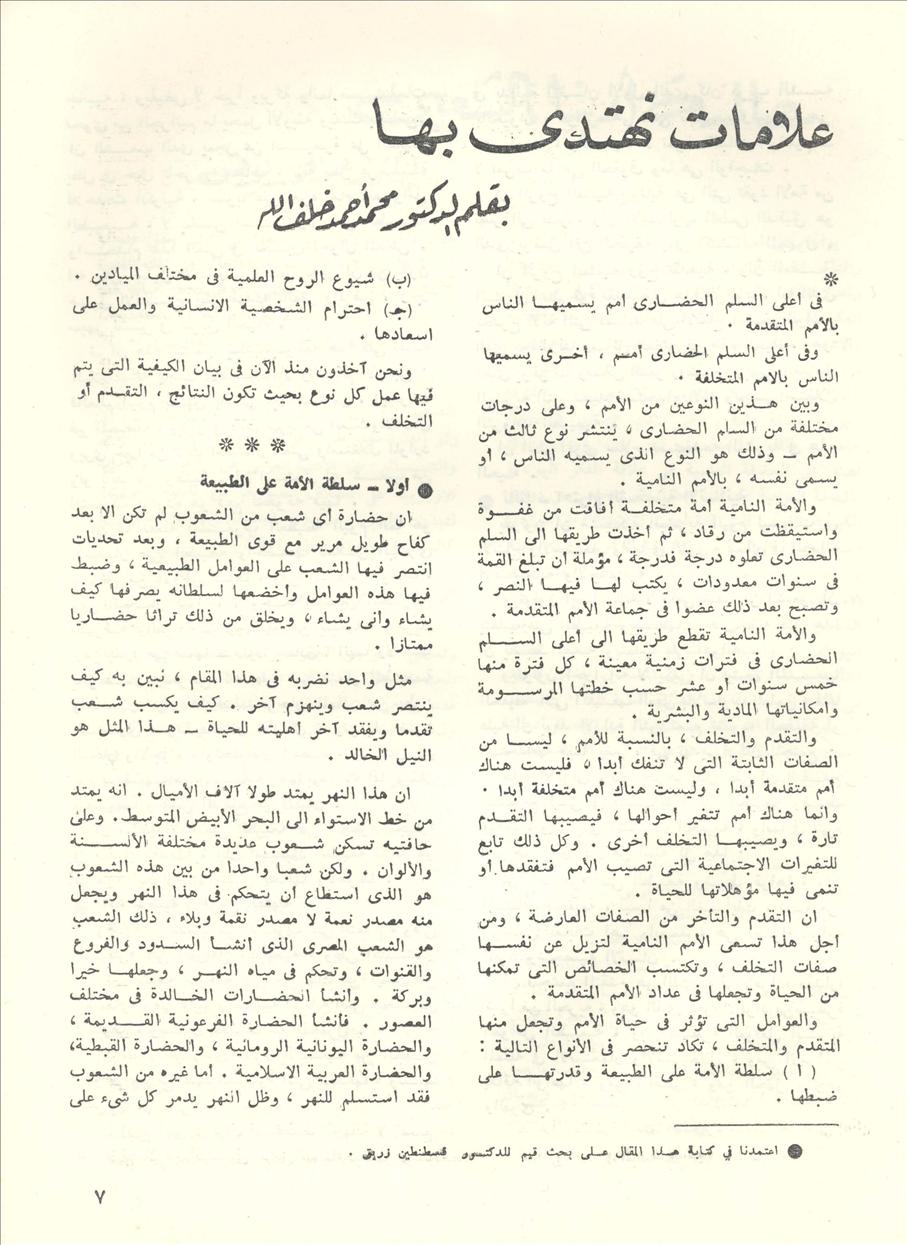 علامات نهتدى بها
بقلم الدكتور محمد أحمد خلف الله
*
فى أعلى السلم الحضارى أمم يسميهـا الناس
بالأمم المتقدمة .
وفى أعلى السلم الحضارى أمـم ، أخـرى يسميها
الناس بالامم المتخلفة .
وبين هـذين النوعين من الأمم ، وعلى درجات
مختلفة من السلم الحضارى ، ينتشر نوع ثالث من
الأمم ــ وذلك هو النوع الذى يسميه الناس ، أو
يسمى نفسه ، بالأمم النامية .
والأمة النامية أمة متخلفـة أفاقت من غفـوة
واستيقظت من رقاد ، ثم أخذت طريقها الى السلم
الحضارى تعلوه درجة فدرجة ، مؤملة أن تبلغ القمة
فى سنوات معدودات ، يكتب لهـا فيهـا النصر ،
وتصبح بعد ذلك عضوا فى جماعة الأمم المتقدمة .
والأمة النامية تقطع طريقها الى أعلى السـلم
الحضارى فى فترات زمنية معينة ، كل فترة منها
خمس سنوات أو عشر حسب خطتها المرسـومة
وامكانياتها المادية والبشرية .
والتقدم والتخلف ، بالنسبة للأمم ، ليسـا من
الصفات الثابتة التى لا تنفك أبدا ، فليست هناك
أمم متقدمة أبدا ، وليست هناك أمم متخلفة أبدا .
وانما هناك أمم تتغير أحوالها ، فيصيبها التقـدم
تارة ، ويصيبهـا التخلف أخرى . وكل ذلك تابع
للتغيرات الاجتماعية التى تصيب الأمم فتفقدها أو
تنمى فيها مؤهلاتها للحياة .
ان التقدم والتأخر من الصفات العارضة ، ومن
أجل هذا تسعى الأمم النامية لتزيل عن نفسـها
صفات التخلف ، وتكتسب الخصائص التى تمكنها
من الحياة وتجعلها فى عداد الأمم المتقدمة .
والعوامل التى تؤثر فى حياة الأمم وتجعل منها
المتقدم والمتخلف ، تكاد تنحصر فى الأنواع التالية :
( ا ) سلطة الأمة على الطبيعة وقدرتهـا على
ضبطها .
(ب) شيوع الروح العلمية فى مختلف الميادين .
(جـ) احترام الشخصية الانسانية والعمل على
اسعادها .
ونحن آخذون منذ الآن فى بيان الكيفية التى يتم
فيها عمل كل نوع بحيث تكون النتائج ، التقـدم أو
التخلف .
* * *
● أولا ــ سلطة الأمة على الطبيعة
ان حضارة أى شعب من الشعوب لم تكن الا بعد
كفاح طويل مرير مع قوى الطبيعة ، وبعد تحديات
انتصر فيها الشعب على العوامل الطبيعية ، وضبط
فيها هذه العوامل وأخضعها لسلطانه يصرفها كيف
يشاء وأنى يشاء ، ويخلق من ذلك تراثا حضـاريا
ممتازا .
مثل واحد نضربه فى هذا المقام ، نبين به كيف
ينتصر شعب وينهزم آخر . كيف يكسب شـعب
تقدما ويفقد آخر أهليته للحياة ــ هـذا المثل هو
النيل الخالد .
ان هذا النهر يمتد طولا آلاف الأميال . انه يمتد
من خط الاستواء الى البحر الأبيض المتوسط. وعلى
حافتيه تسكن شـعوب عديدة مختلفة الألسـنة
والألوان . ولكن شعبا واحدا من بين هذه الشعوب
هو الذى استطاع أن يتحكم فى هذا النهر ويجعل
منه مصدر نعمة لا مصدر نقمة وبلاء ، ذلك الشعب
هو الشعب المصرى الذى أنشـأ السـدود والفروع
والقنوات ، وتحكم فى مياه النهـر ، وجعلهـا خيرا
وبركة . وأنشأ الحضـارات الخـالدة فى مختلف
العصور . فأنشأ الحضارة الفرعونية القـديمة ،
والحضارة اليونانية الرومانية ، والحضارة القبطية،
والحضارة العربية الاسلامية . أما غيره من الشعوب
فقد استسلم للنهر ، وظل النهر يدمر كل شىء على
● اعتمدنا في كتابة هـذا المقال عـلى بحث قيم للدكتـور قسطنطين زريق .
٧